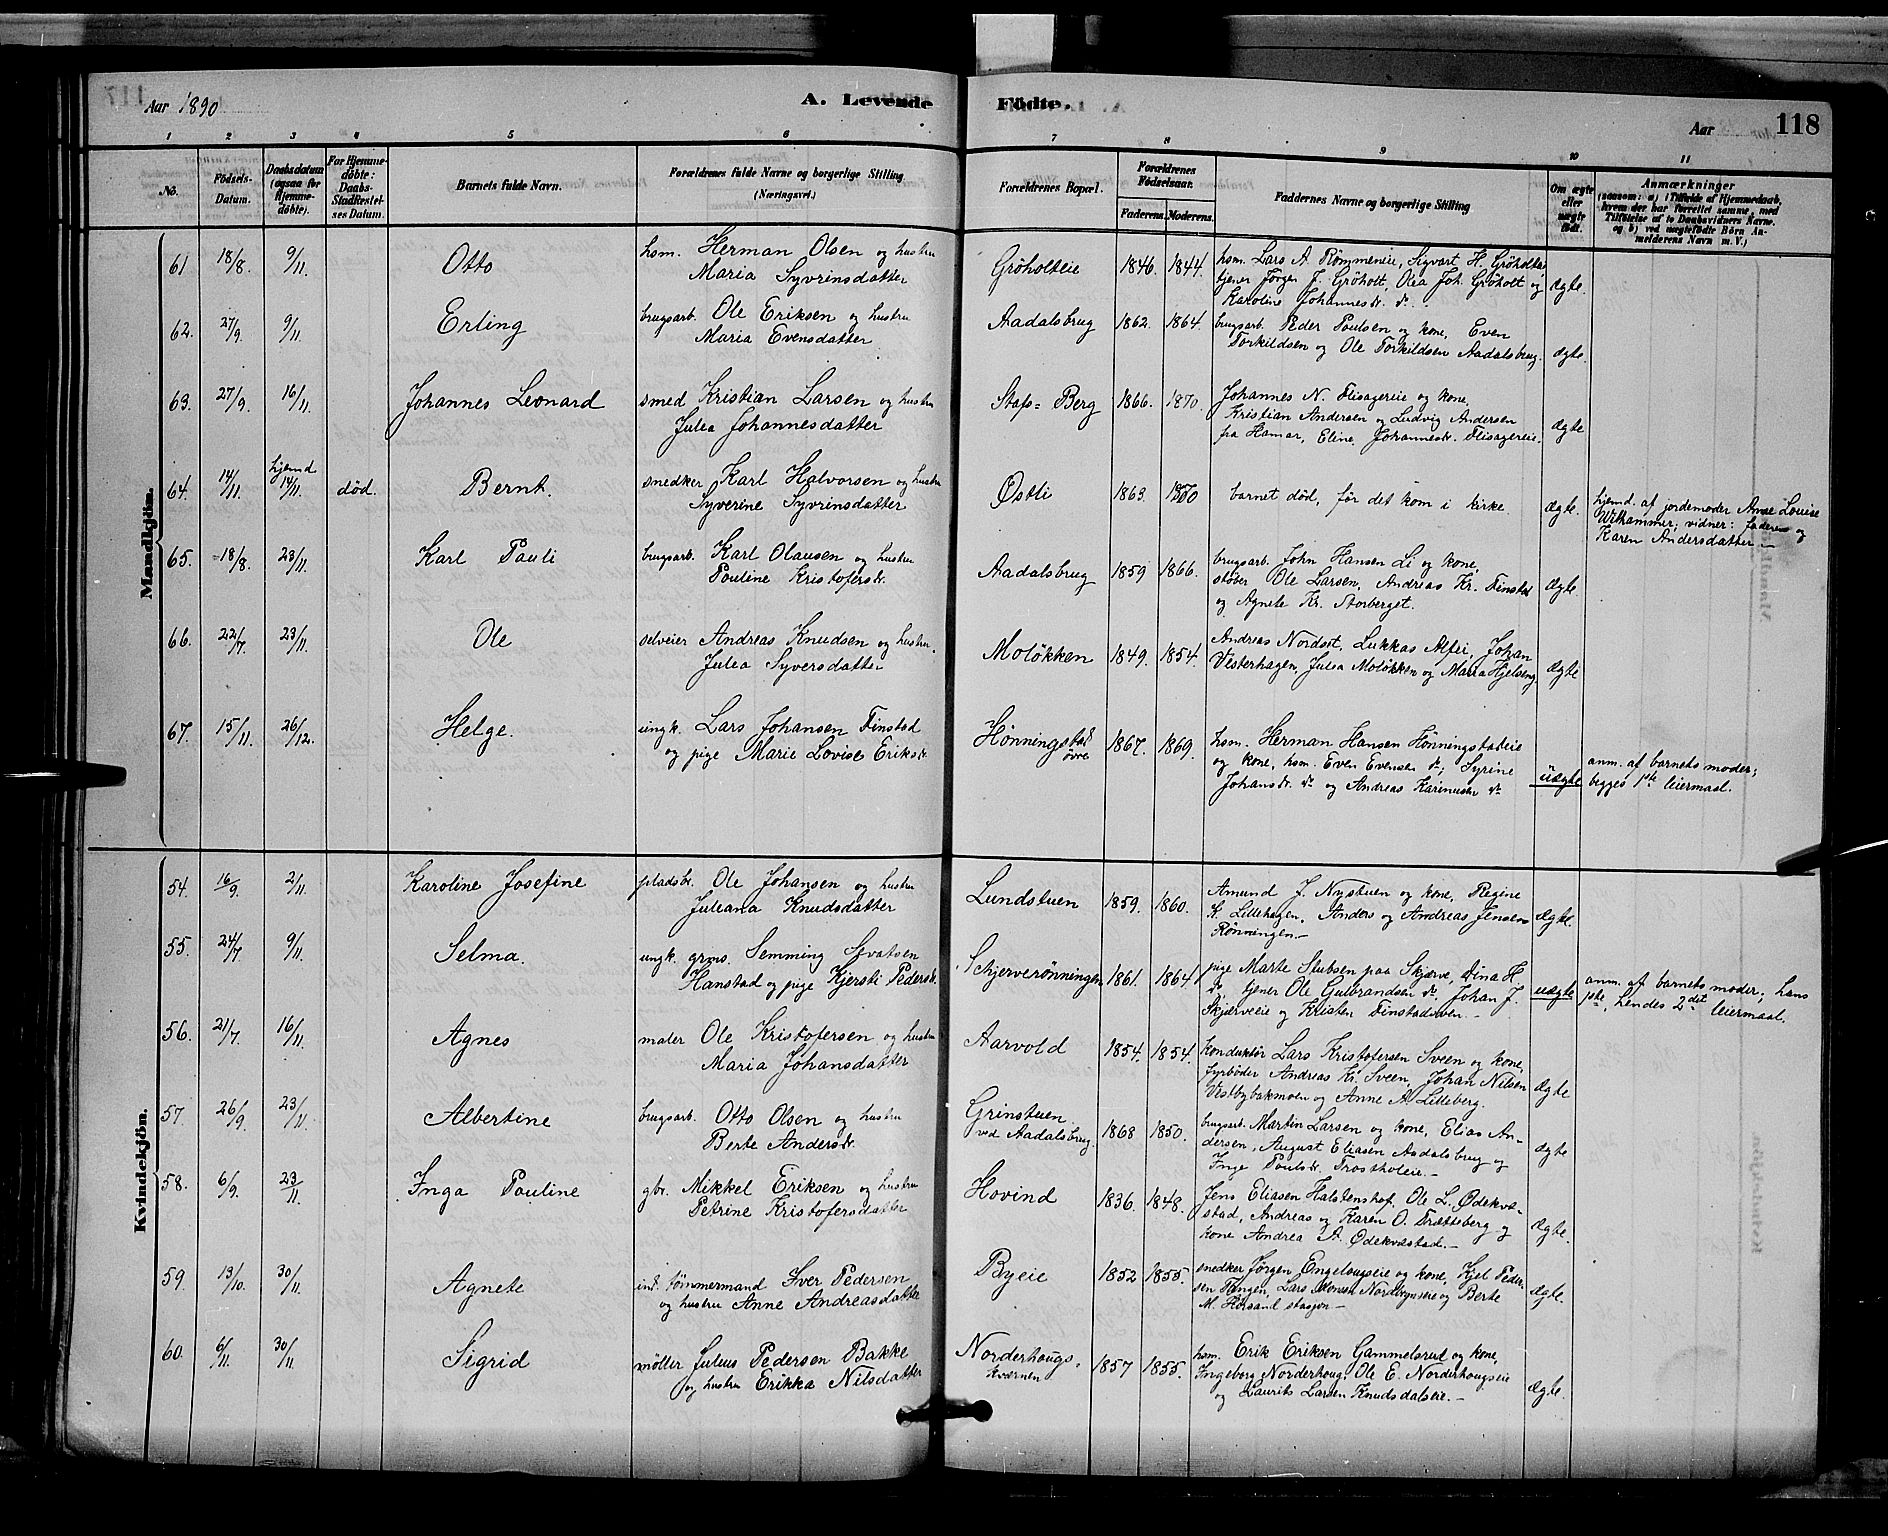 Aar 1890
A. Levende Födte.
Aar
118
1 2 3 4 5 6 7 8 9 10 11
No.
Födsels-
Datum.
Daabsdatum
(ogsaa for
Hjemme-
döbte).
For Hjemme-
döbte:
Daabs-
Stadfæstel-
ses Datum.
Barnets fulde Navn.
Forældrenes fulde Navne og borgerlige Stilling
(Næringsvei.)
Forældrenes Bopæl.
Forældrenes
Födselsaar.
Faderens. Moderens.
Faddernes Navne og borgerlige Stilling
Om ægte
eller
uægte
født.
Anmærkninger
(saasom: a) i Tilfælde af Hjemmedaab,
hvem der har forrettet samme, med
Tilföielse af to Daabsvidners Navne.
og b) ved uægtefödte Börn An-
melderens Navn m. V.)
Mandkjön.
61 18/8. 9/11. Otto
hsm. Herman Olsen og hustru
Maria Syvrinsdatter
Gröholteie 1846. 1844.
hsm. Lars A. Rømmeneie, Sigvart H. Gröholteie
tjener Jørgen J. Gröholt, Olea Joh. Gröholt og
Karoline Johannesdr. do.
ægte.
62. 27/9. 9/11. Erling
brugsarb. Ole Eriksen og hustru
Maria Evensdatter
Aadalsbrug 1862. 1864.
brugsarb. Peder Poulsen og kone, Even
Torkildsen og Ole Torkildsen Aadalsbrug.
ægte.
63. 27/9. 16/11. Johannes Leonard
smed Kristian Larsen og hustru
Julea Johannesdatter
Stafs= Berg 1866. 1870.
Johannes N. Flisagereie og kone,
Kristian Andersen og Ludvig Andersen
fra Hamar, Eline Johannesdr. Flisagereie.
ægte
64. 14/11. hjemd 14/11. død. Bernt.
snedker Karl Halvorsen og hustru
Syverine Syvrinsdatter
Østli 1863. 1870
barnet död, før det kom i kirke
ægte.
hjemd. af jordemoder Anne Louise
Wilhammer; vidner: faderen og
Karen Andersdatter.—
65. 18/8. 23/11. Karl Pauli
brugsarb. Karl Olausen og hustru
Pouline Kristofersdr.
Aadalsbrug 1859 1866.
brugsarb. John Hansen Li og kone,
støber Ole Larsen, Andreas Kr. Finstad
og Agnete Kr. Storberget.
ægte
66. 22/7. 23/11. Ole
selveier Andreas Knudsen og hustru
Julea Syversdatter
Moløkken 1849. 1854.
Andreas Nordset, Lukkas Alfei, Johan
Vesterhagen, Julea Moløkken og Maria Hjelseng
ægte
67. 15/11. 26/12. Helge.
ungk. Lars Johansen Finstad
og pige Marie Lovise Eriksdr.
Hönningstad
övre 1867. 1869.
hsm. Herman Hansen Hönningstadeie
og kone, hsm. Even Evensen do; Syrine
Johansdr. do og Andreas Karinusen do
uægte
anm. af barnets moder;
begges 1ste leiermaal.
Kvindekjön.
54. 16/9. 2/11. Karoline Josefine
pladsbr. Ole Johansen og hustru
Juleana Knudsdatter
Lundstuen 1859. 1860.
Amund J. Nystuen og kone, Regine
K. Lillehagen, Anders og Andreas Jensen
Rönningen.—
ægte.
55. 24/7. 9/11. Selma.
ungk. grms. Semming Sevatsen
Hanstad og pige Kjersti Pedersdr.
Schjerverønningen 1861. 1864
pige Marte Stubsen paa Skjerve, Dina H
do tjener Ole Gulbrandsen do, Johan J.
Skjerveeie og Kristen Finstadsveen.—
uægte
anm. af barnets moder; hans
1ste, hendes 2det leiermaal.
56. 21/7. 16/11. Agnes
maler Ole Kristofersen og hustru
Maria Johansdatter
Aarvold 1854. 1854.
konduktör Lars Kristofersen Sveen og kone,
fyrbøder Andreas Kr. Sveen, Johan Nilsen
Vestbybakmoen og Anne A. Lilleberg.
ægte
57. 26/9. 23/11. Albertine
brugsarb. Otto Olsen og hustru
Berte Andersdr.
Grinstuen
ved Aadalsbrug 1868 1850.
brugsarb. Martin Larsen og kone, Elias An-
dersen, August Eliasen Aadalsbrug og
Inge Poulsdr. Trostholeie.—
ægte
58. 6/9. 23/11. Inga Pauline
gbr. Mikkel Eriksen og hustru
Petrine Kristofersdatter
Hovind 1836. 1848.
Jens Eliasen Halstenshof, Ole L. Ødekvæ-
stad, Andreas og Karen O. Trætteberg og
kone Andrea A. Ødekvæstad.—
ægte.
59. 13/10. 30/11. Agnete
ind. tømmermand Iver Pedersen
og hustru Anne Andreasdatter
Byeie 1852 1855.
snedker Jørgen Engelaugseie og kone, Kjel Peder-
sen Tangen, Lars Nordbyseie og Berte
M. Hørsand stasjon—
ægte.
60. 6/11. 30/11. Sigrid
møller Julius Pedersen Bakke
og hustru Erikka Nilsdatter
Norderhougs-
kværnen 1857 1855.
hsm. Erik Eriksen Gammelsrud og kone,
Ingeborg Norderhoug, Ole E. Norderhougseie
og Laurits Larsen Knudsdalseie.—
ægte.